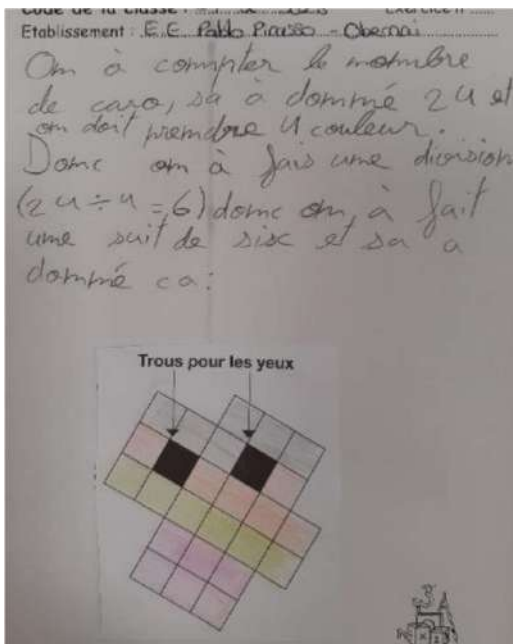 Code de la classe :
Exercice n°
Etablissement : E.E. Pablo Picasso - Obernai
On à compter le nombre
de caro, sa à donné 24 et
on doit prendre 4 couleur.
Donc on à fais une division
(24÷4=6) donc on à fait
une suit de six et sa a
donné ca:
Trous pour les yeux